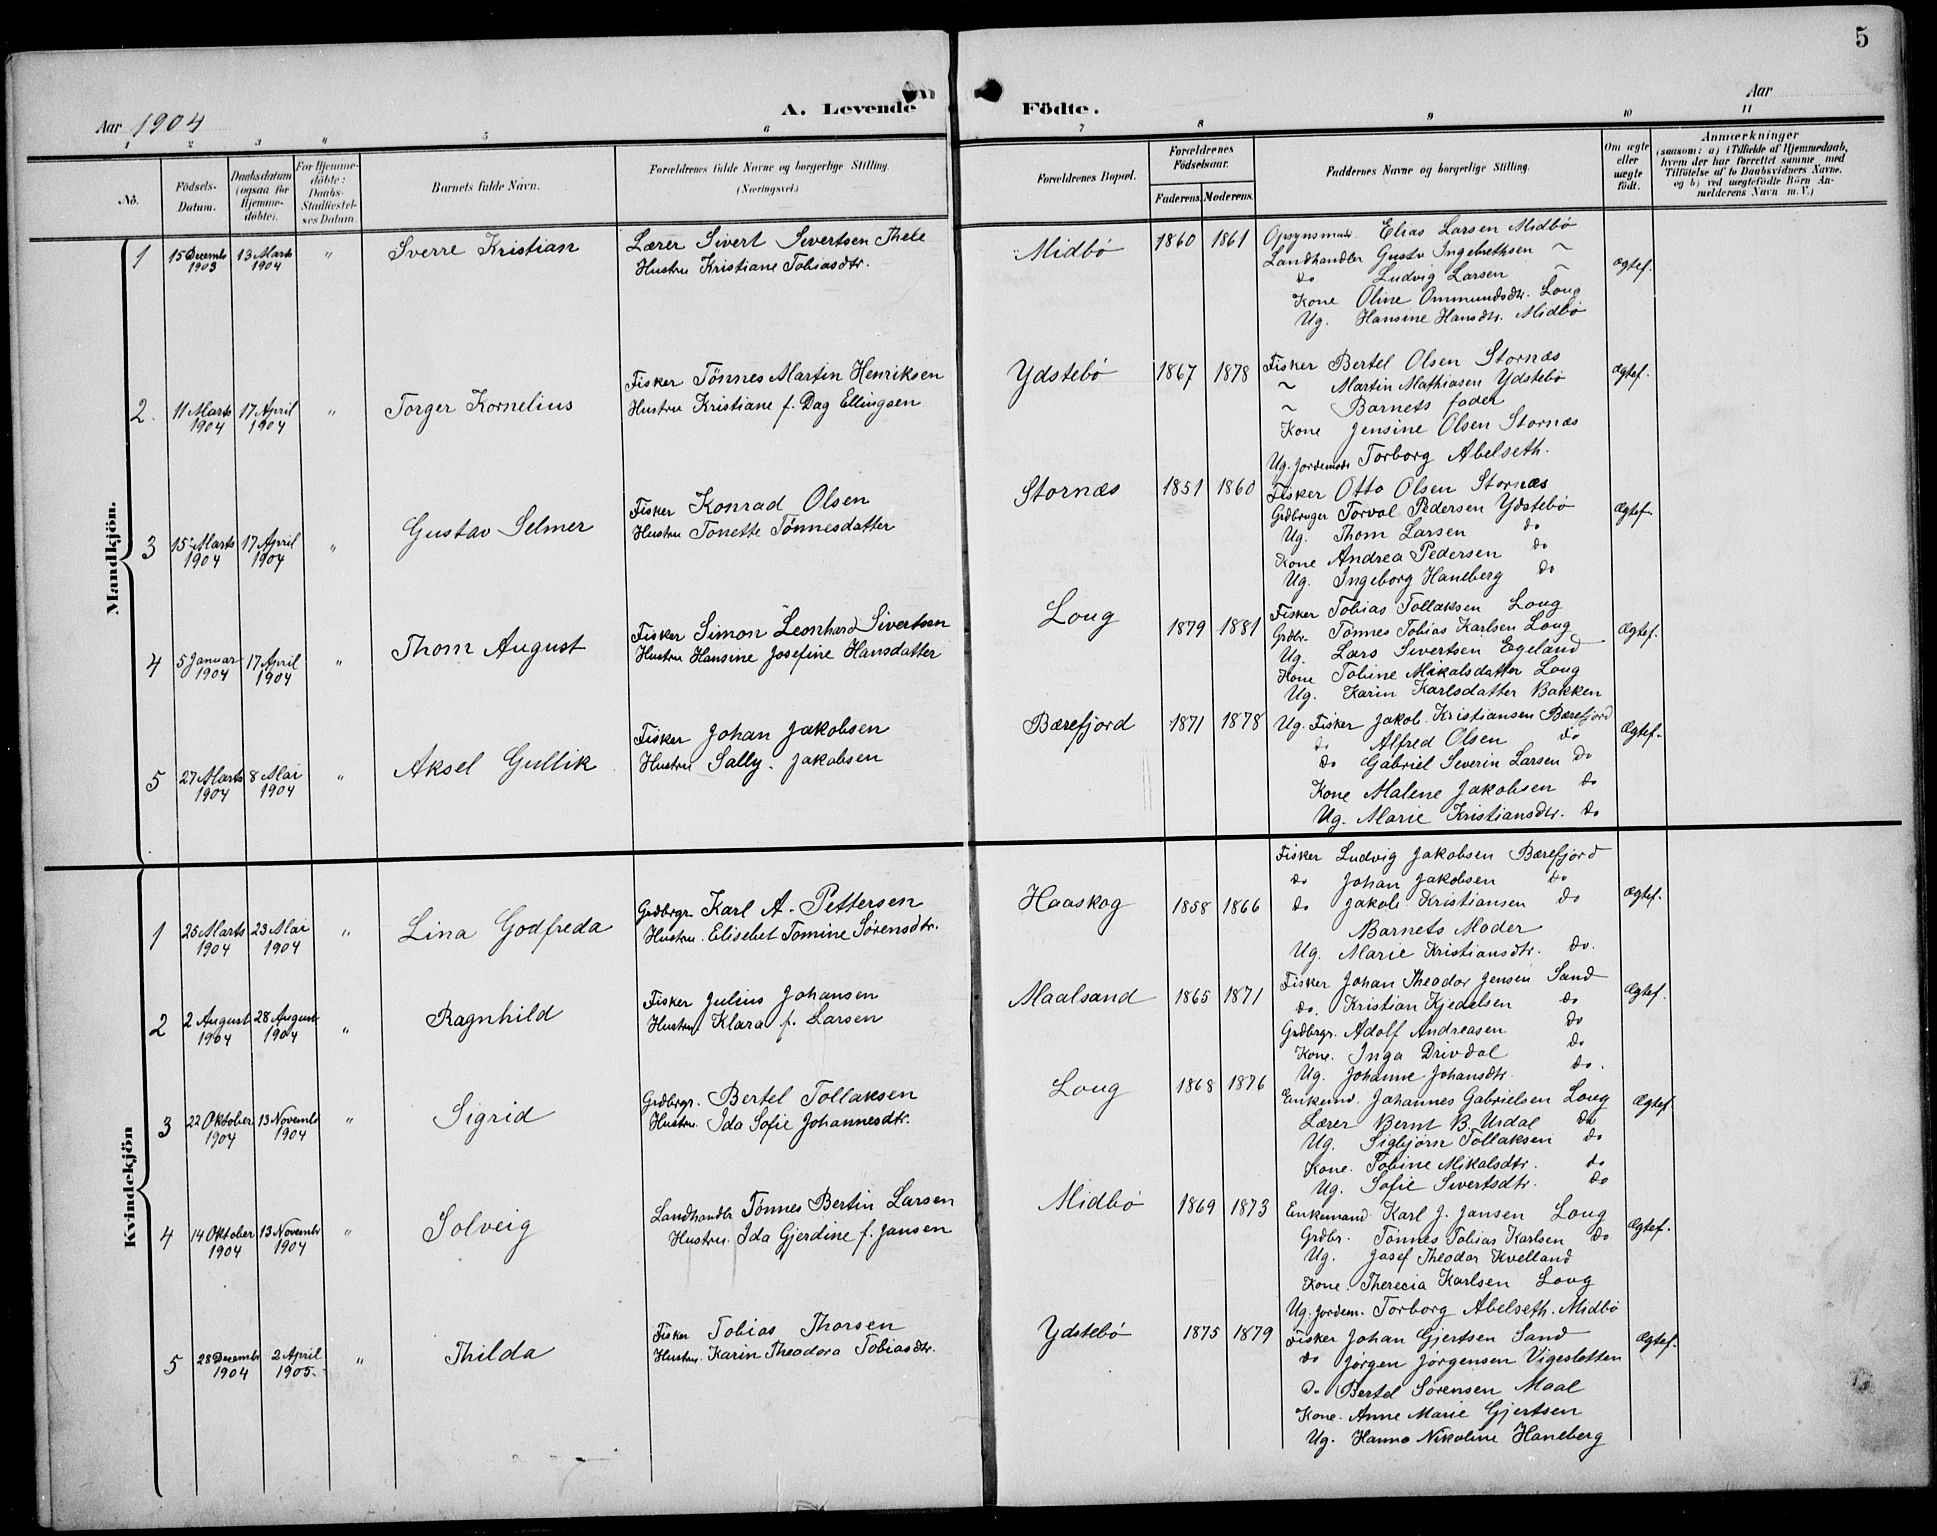 5
Aar 1904
A. Levende Födte.
Aar
1 2 3 " 5 6 7 8 9 10 11
No.
Födsels-Datum.
Daabsdatum (ogsaa for Hjemmedöbte).
For Hjemmedöbte: Daabs-Stadfæstelses Datum
Barnets fulde Navn.
Forældrenes fulde Navne og borgerlige Stilling.
(Næringsvei.)
Forældrenes Bopæl.
Forældrenes Födselsaar.
Faderens. Moderens.
Faddernes Navne og borgerlige Stilling.
Om ægte eller uægte födt.
Anmærkninger
(saasom: a) i Tilfælde af Hjemmedaab, hvem der har forrettet samme, med Tilföielse af to Daabsvidners Navne. og b) ved uægtefödte Börn Anmelderens Navn m. V.)
Mandkjön.
1 15 Decemb 1903 13 Marts 1904 " Sverre Kristian
Lærer Sivert Severtsen Thele
Hustru Kristiane Tobiasdtr.
Midbö 1860 1861
Opsynsmad. Elias Larsen Midbö
Landhandler Gustv Ingebrethsen ~
do Ludvig Larsen ~
Kone Oline Ommundsdtr. Loug
Ug. Hansine Hansdtr. Midbö
Ægtef.
2. 11 Marts 1904 17 April 1904 " Torger Kornelius
Fisker Tönnes Martin Henriksen
Hustru Kristiane f. Dag Ellingsen
Ydstebö 1867 1878
Fisker Bertel Olsen Stornæs
~ Martin Mathiasen Ydstebö
~ Barnets fader
Kone Jensine Olsen Stornæs
Ug. Jordemode Torborg Abelseth.
Ægtef.
3 15 Marts 1904 17 April 1904 " Gustav Selmer
Fisker Konrad Olsen
Hustru Tonette Tönnesdatter
Stornæs 1851 1860
Fisker Otto Olsen Stornæs
Grdbruger Torval Pedersen Ydstebö
Ug. Thom Larsen do
Kone Andrea Pedersen do
Ug. Ingeborg Haneberg do
Ægtef.
4 5 Januar 1904 17 April 1904 " Thom August
Fisker Simon Leonhard Sivertsen
Hustru Hansine Josefine Hansdatter
Loug 1879 1881
Fisker Tobias Tollaksen Loug
Grdbr. Tönnes Tobias Karlsen Loug
Ug. Lars Sivertsen Egeland
Kone Tobine Mikalsdatter Loug
Ug. Karin Karlsdatter Bakken
Ægtef.
5 27 Marts 1904 8 Mai 1904 " Aksel Gullik
Fisker Johan Jakobsen
Hustru Sally. Jakobsen
Bærefjord 1871 1878
Ug. Fisker Jakob Kristiansen Bærefjord
do Alfred Olsen do
do Gabriel Severin Larsen do
Kone Malene Jakobsen do
Ug. Marie Kristiansdtr. do
Ægtef.
Kvindekjön
1 25 Marts 1904 23 Mai 1904 " Lina Godfreda
Grdbrgr. Karl A. Pettersen
Hustru. Elisebet Tomine Sörensdtr.
Haaskog 1858 1866
Fisker Ludvig Jakobsen Bærefjord
do Johan Jakobsen do
do Jakob Kristiansen do
Barnets Moder
Ug. Marie Kristiansdtr. do.
Ægtef.
2 2 August 1904 28 August 1904 " Ragnhild
Fisker Julius Johansen
Hustru Klara f. Larsen
Maalsand 1865 1871
Fisker Johan Theodor Jensen Sand
do. Kristian Kjedelsen do
Grdbrgr. Adolf Andreasen do
Kone. Inga Drivdal do
Ug. Johanne Johansdtr. do.
Ægtef.
3 22 Oktober 1904 13 Novemb 1904 " Sigrid
Grdbrgr. Bertel Tollaksen
Hustru. Ida Sofie Johannesdtr.
Loug 1868 1876
Enkemd. Johannes Gabrielsen Loug
Lærer Bernt B. Urdal do
Ug. Sigbjörn Tollaksen do
Kone. Tobine Mikalsdtr. do
Ug. Sofie Sivertsdtr. do
Ægtef.
4 14 Oktober 1904 13 Novemb 1904 " Solveig
Landhandlr Tönnes Bertin Larsen
Hustru. Ida Gjerdine f. Jansen
Midbö 1869 1873
Enkemand Karl J. Jansen Loug
Grdbr. Tönnes Tobias Karlsen do
Ug. Josef Theodor Kvelland
Kone. Therecia Karlsen Loug
Ug. Jordem. Torborg Abelseth. Midbö
Ægtef.
5 28 Decemb 1904 2 April 1905. " Thilda
Fisker Tobias Thorsen
Hustru. Karin Theodora Tobiasdtr.
Ydstebö 1875 1879
Fisker Johan Gjertsen Sand
do Jörgen Jörgensen Vigesletten
do Bertel Sörensen Maal
Kone. Anne Marie Gjertsen
Ug. Hanna Nikoline Haneberg
Ægtef.